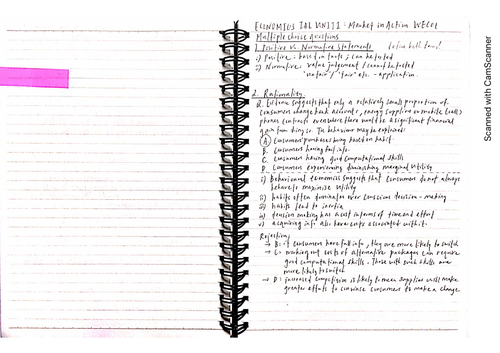 ECONOMICS IAL UNIT 1: Market in Action WEC01
Multiple choice questions
1. Positive vs. Normative Statements
Define both terms!
i) Positive: based on facts; can be tested
ii) Normative: value judgement / cannot be tested
'unfair'/'fair' etc. - application.
2. Rationality
Q. Evidence suggests that only a relatively small proportion of
consumers change bank accounts, energy suppliers or mobile (cell)
phones contracts even where there would be a significant financial
gain from doing so. The behaviour may be explained:
A Consumers' purchases being based on habit
B. Consumers having full info.
C. Consumers having good computational skills
D. Consumers experiencing diminishing marginal utility
i) Behavioural economics suggests that consumers do not always
behave to maximise utility
ii) habits often dominates over conscious decision-making
iii) habits lead to inertia
iv) decision making has a cost in terms of time and effort
v) acquiring info also have costs associated with it.
Rejection:
→ B: if consumers have full info, they are more likely to switch
→ C: working out costs of alternative packages can require
good computational skills. Those with such skills are
more likely to switch
→ D: increased competition is likely to mean suppliers will make
greater efforts to convince consumers to make a change.
Scanned with CamScanner